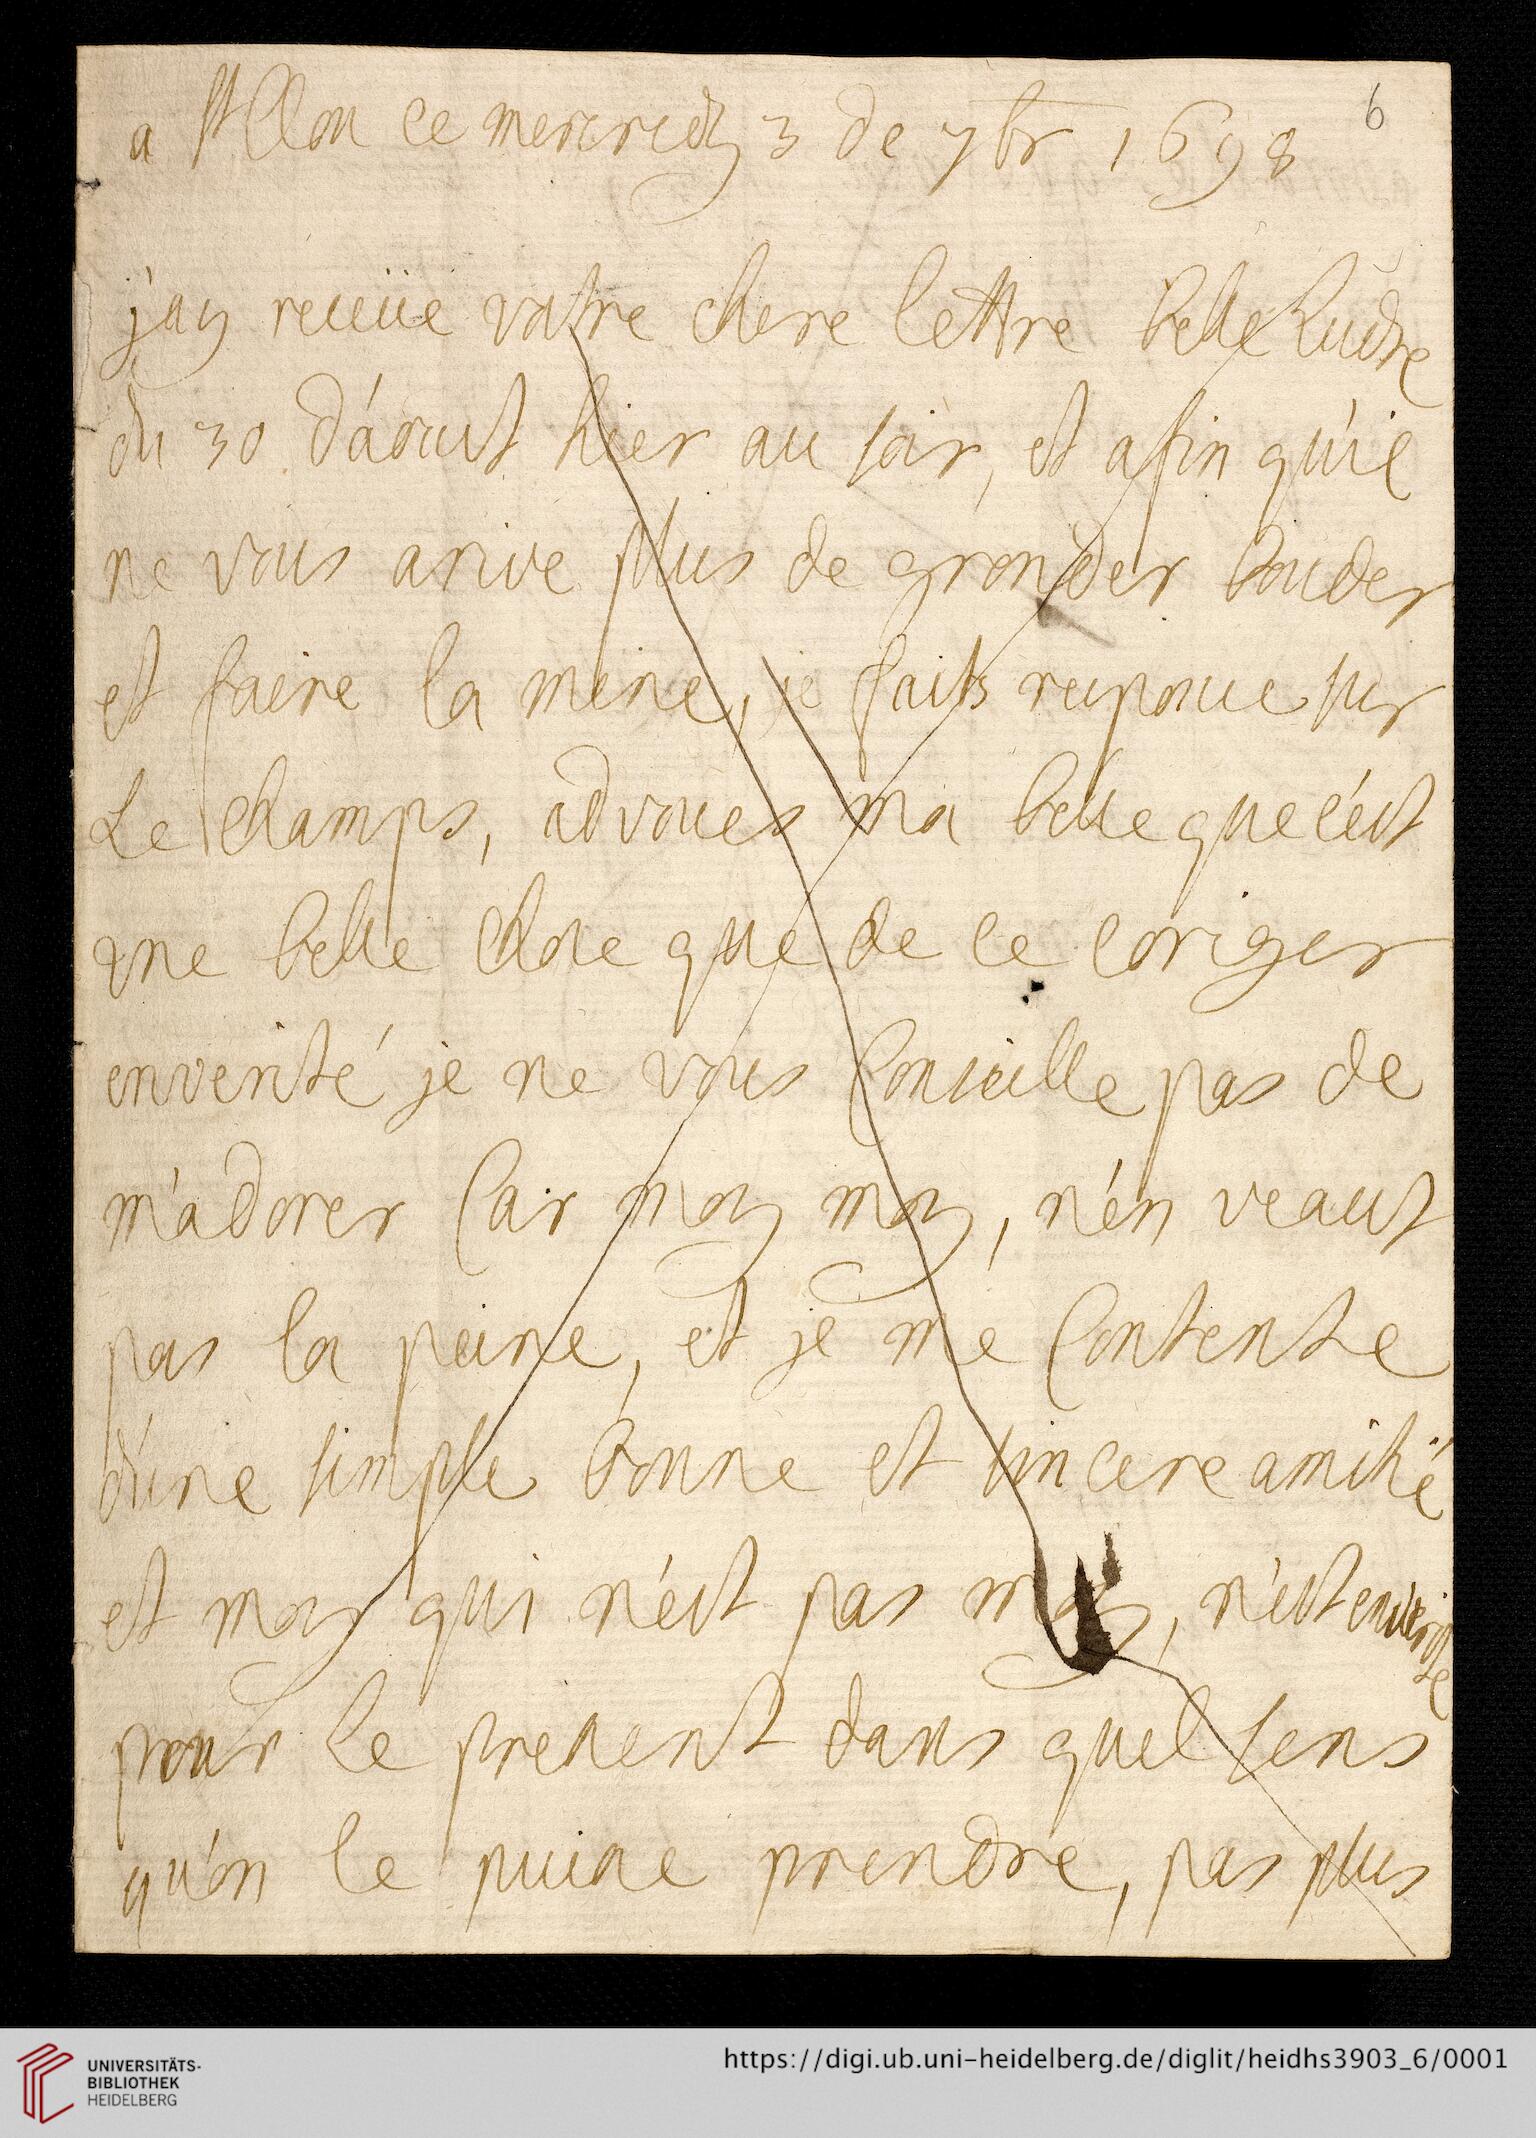 6
a St Clou ce mercredy 3 de 7br 1698
j'ay reçeüe vostre chere lettre belle Ludre
du 30 d'áoust hier au soir, et afin qu'il
ne vous arive plus de gronder bouder
et faire la mine, je faits responce sur
Le champs, advoues ma belle que c'ést
une belle chose que de ce coriger
enverité je ne vous conseille pas de
m'adorer car moy moy, n'én veaut
pas la peine, et je me contente
d'úne simple bonne et sincere amitié
et moy qui n'ést pas moy, n'ést enverite
pour Le present dans quel sens
qu'ón le puise prendre, pas plus
UNIVERSITÄTS-
BIBLIOTHEK
HEIDELBERG
https://digi.ub.uni-heidelberg.de/diglit/heidhs3903_6/0001